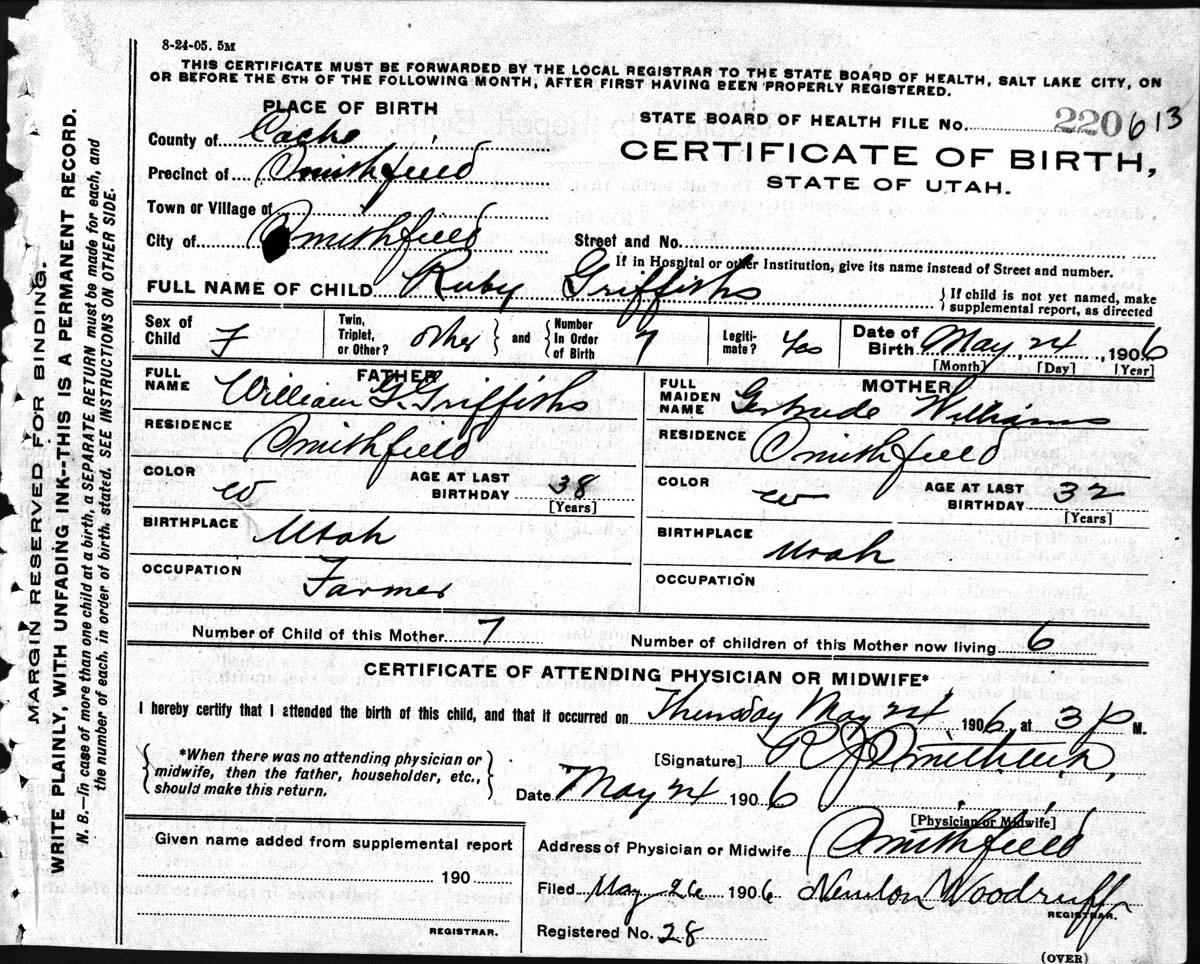 8-24-05. 5M
THIS CERTIFICATE MUST BE FORWARDED BY THE LOCAL REGISTRAR TO THE STATE BOARD OF HEALTH, SALT LAKE CITY, ON
OR BEFORE THE 5TH OF THE FOLLOWING MONTH, AFTER FIRST HAVING BEEN PROPERLY REGISTERED.
PLACE OF BIRTH
County of Cache
Precinct of Smithfield
Town or Village of
City of Smithfield
STATE BOARD OF HEALTH FILE No. 220613
CERTIFICATE OF BIRTH,
STATE OF UTAH.
Street and No.
If in Hospital or other Institution, give its name instead of Street and number.
FULL NAME OF CHILD Ruby Griffiths
{ If child is not yet named, make
supplemental report, as directed
Sex of Child F
Twin, Triplet, or Other? other } and { Number In Order of Birth 7
Legitimate? Yes
Date of Birth May, 24, 1906
[Month] [Day] [Year]
FATHER
FULL NAME William G. Griffiths
RESIDENCE Smithfield
COLOR w
AGE AT LAST BIRTHDAY 38
[Years]
BIRTHPLACE Utah
OCCUPATION Farmer
MOTHER
FULL MAIDEN NAME Gertrude Williams
RESIDENCE Smithfield
COLOR w
AGE AT LAST BIRTHDAY 32
[Years]
BIRTHPLACE Utah
OCCUPATION
Number of Child of this Mother 7
Number of children of this Mother now living 6
CERTIFICATE OF ATTENDING PHYSICIAN OR MIDWIFE*
I hereby certify that I attended the birth of this child, and that it occurred on Thursday May 24 1906 at 3 P M.
{ *When there was no attending physician or
midwife, then the father, householder, etc.,
should make this return. }
[Signature] R J
Date May 24 1906
[Physician or Midwife]
Given name added from supplemental report
190
REGISTRAR.
Address of Physician or Midwife Smithfield
Filed May 26 1906 Newton Woodruff
REGISTRAR.
Registered No. 28
(OVER)
MARGIN RESERVED FOR BINDING.
WRITE PLAINLY, WITH UNFADING INK--THIS IS A PERMANENT RECORD.
N. B.—In case of more than one child at a birth, a SEPARATE RETURN must be made for each, and
the number of each, in order of birth, stated. SEE INSTRUCTIONS ON OTHER SIDE.